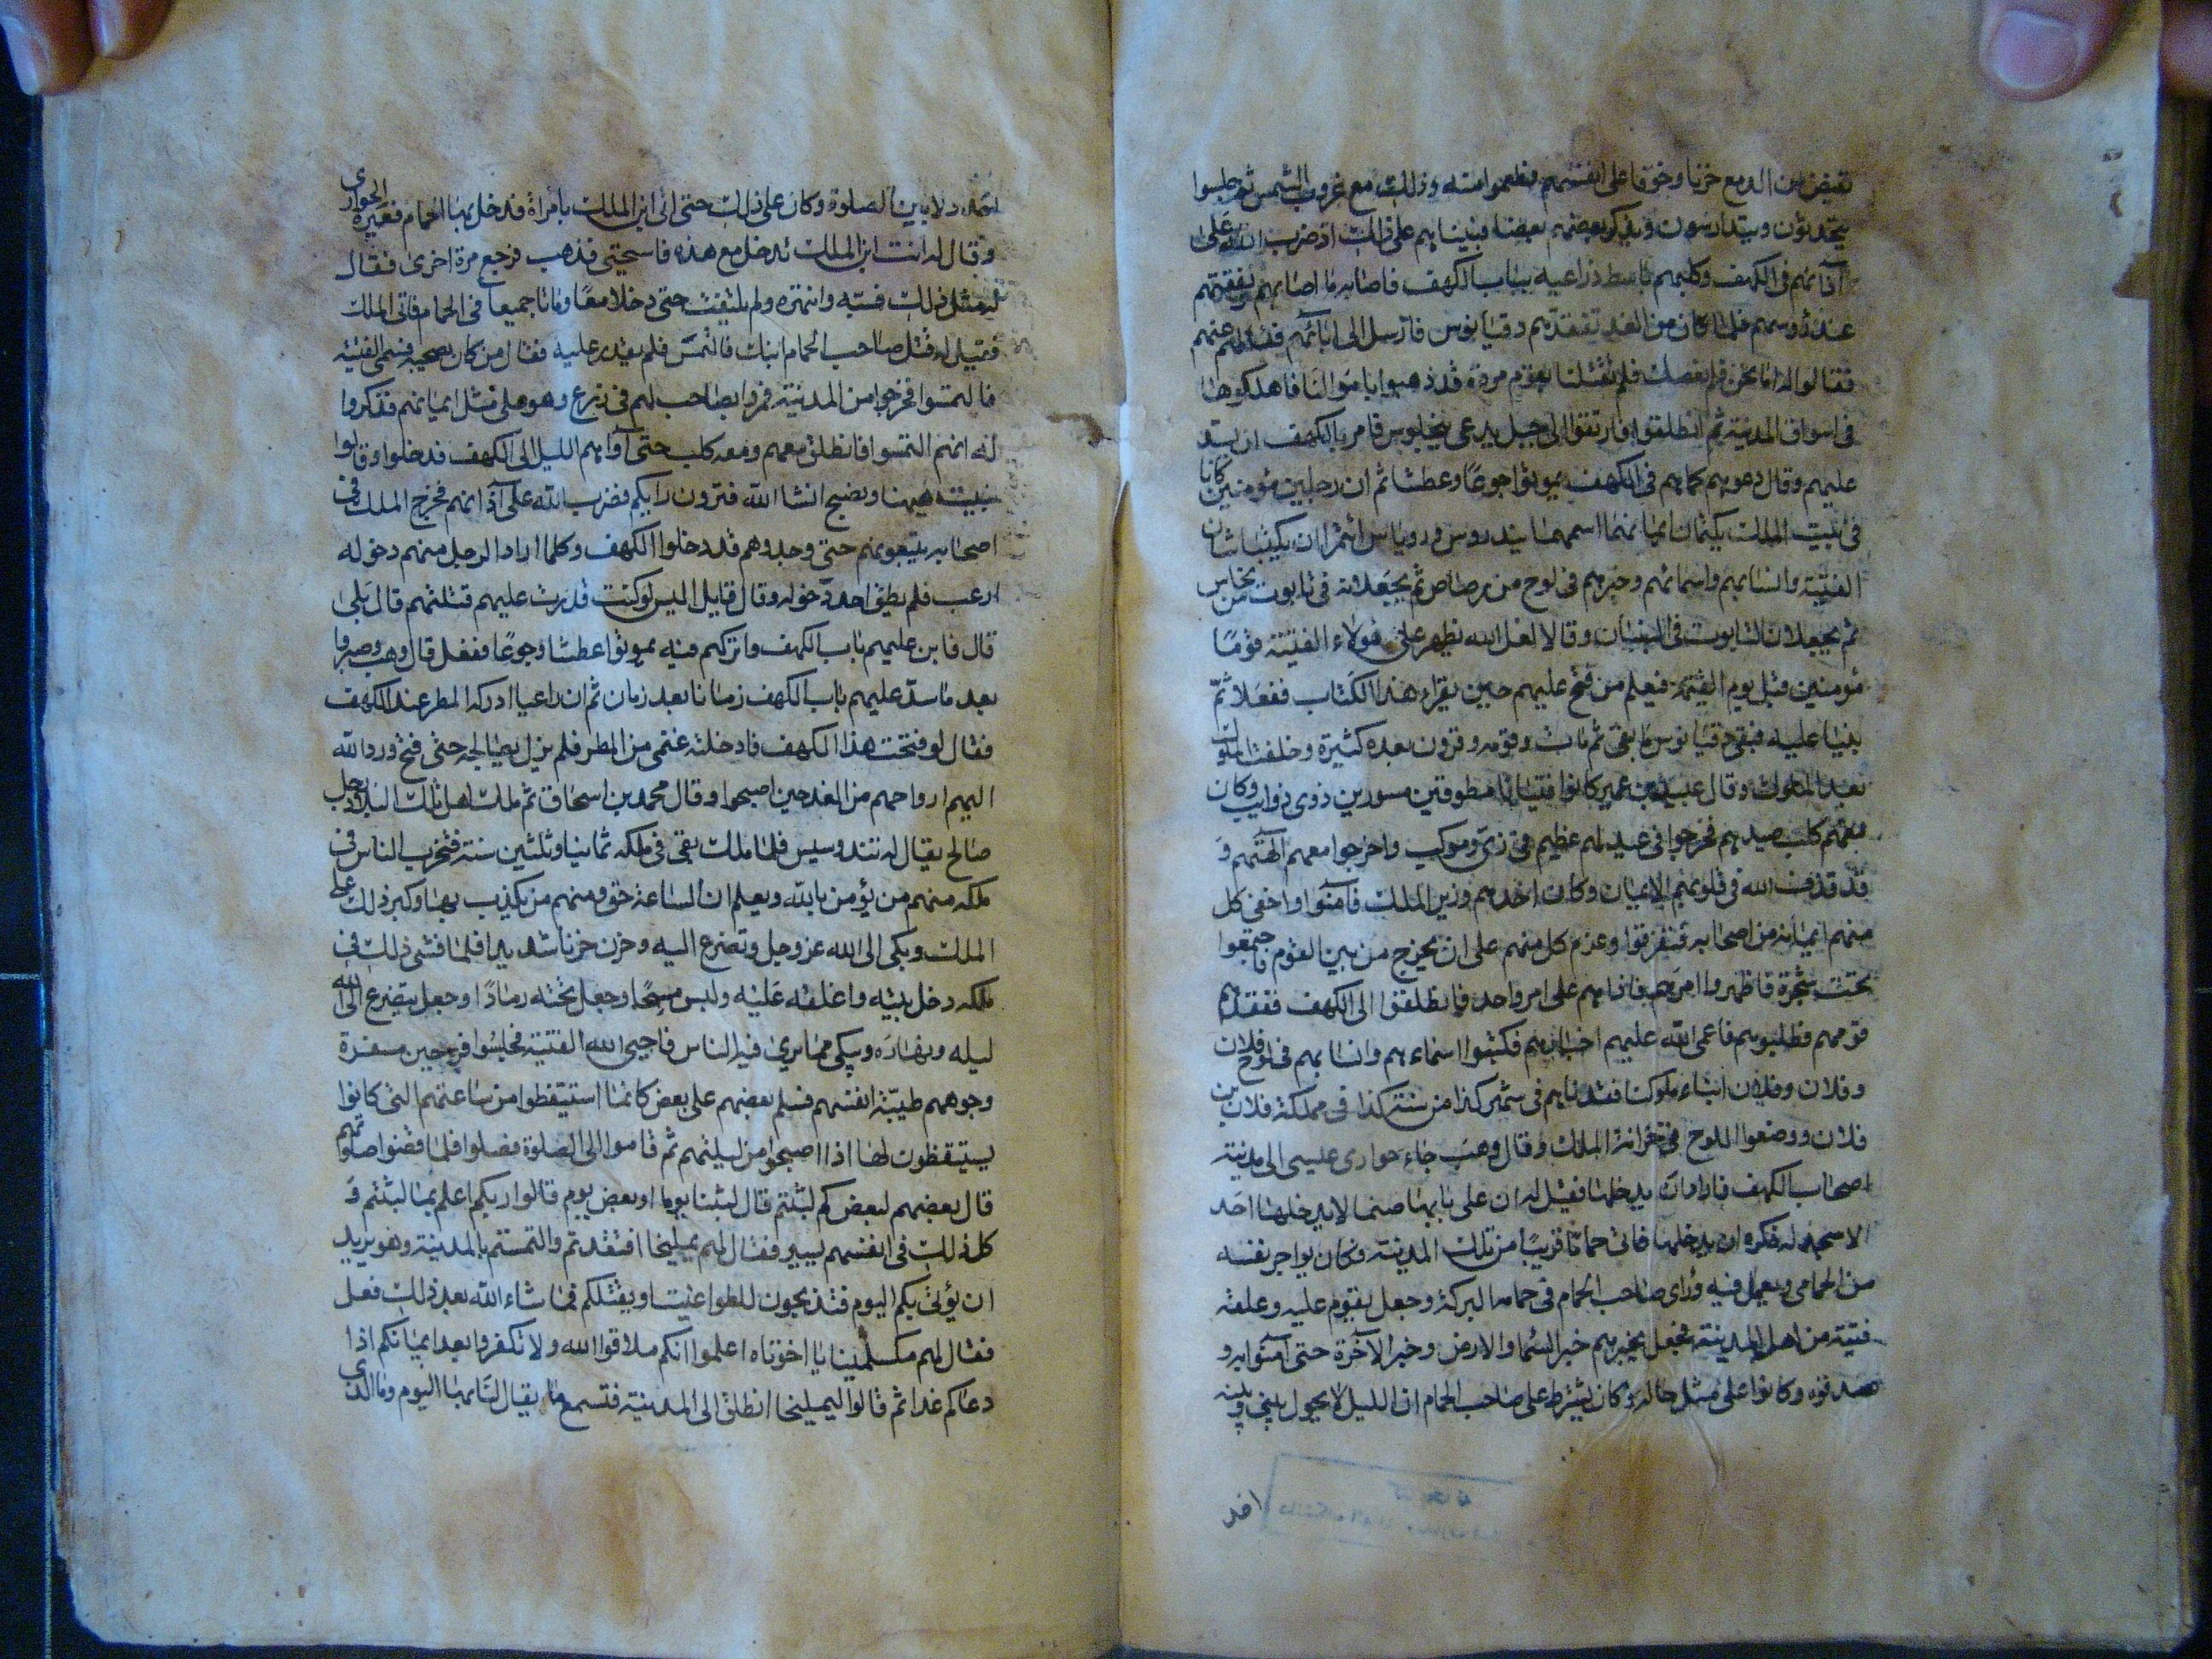 تفيض من الدمع حزنا وخوفا على انفسهم فطعموا منه وذلك مع غروب الشمس ثم جلسوا
يتحدثون ويتدارسون ويذكر بعضهم بعضا فبينا هم على ذلك اذ ضرب الله على
آذانهم فى الكهف وكلبهم باسط ذراعيه بباب الكهف فاصابه ما اصابهم ونفقتهم
عند رؤسهم فلما كان من الغد تفقدهم دقيانوس فارسل الى ابائهم فسئلهم عنهم
فقالوا له اما نحن فلم نعصك فلم تقتلنا بقوم مردة قد ذهبوا باموالنا فاهلكوها
فى اسواق المدينة ثم انطلقوا فارتقوا الى جبل يدعى بنجلوس فامر بالكهف ان يسد
عليهم وقال دعوهم كما هم فى الكهف يموتوا جوعا وعطشا ثم ان رجلين مؤمنين كانا
فى بيت الملك يكتمان ايمانهما اسمهما بيدروس وروياس ائتمرا ان يكتبا شان
الفتية وانسابهم واسمائهم وخبرهم فى لوح من رصاص ثم يجعلانه فى تابوت من نحاس
ثم يجعلان التابوت فى البنيان وقالا لعل الله يظهر على هؤلاء الفتية قوما
مؤمنين قبل يوم القيمة فيعلم من فتح عليهم حين يقراء هذا الكتاب ففعلا ثم
بنيا عليه فبقى دقيانوس ما بقى ثم مات وقومه وقرون بعده كثيرة وخلفت الملوك
بعد الملوك وقال عبيد بن عمير كانوا فتيانا مطوقين مسورين ذوى ذوايب وكان
معهم كلب صيدهم فخرجوا فى عيد لهم عظيم فى زى وموكب واخرجوا معهم الهتهم و
قد قذف الله فى قلوبهم الايمان وكان احدهم وزير الملك فآمنوا واخفى كل
منهم ايمانه من اصحابه فتفرقوا وعزم كل منهم على ان يخرج من بين القوم فاجتمعوا
تحت شجرة فاظهروا امرهم فاذا هم على امر واحد فانطلقوا الى الكهف ففقدهم
قومهم فطلبوهم فاعمى الله عليهم اخبارهم فكتبوا اسماءهم وانسابهم فى لوح فلان
وفلان وفلان ابناء ملوكنا فقدناهم فى شهر كذا من سنة كذا فى مملكة فلان بن
فلان ووضعوا اللوح فى خزانة الملك وقال وهب جاء حوارى عيسى الى مدينة
اصحاب الكهف فاراد ان يدخلها فقيل له ان على بابها صنما لا يدخلها احد
الا سجد له فكره ان يدخلها فاتى حماما قريبا من تلك المدينة وكان يواجر نفسه
من الحمامى ويعمل فيه وراى صاحب الحمام فى حمامه البركة وجعل يقوم عليه وعلقه
فتية من اهل المدينة فجعل يخبرهم خبر السماء والارض وخبر الآخرة حتى آمنوا به و
صدقوه وكانوا على مثل حاله وكان يشترط على صاحب الحمام ان الليل لا يحول بينى وبينه
احد ولا بين الصلوة وكان على ذلك حتى اتى ابن الملك بامراة فدخل بها الحمام فعيره الحوارى
وقال له انت ابن الملك تدخل مع هذه فاستحيى فذهب فرجع مرة اخرى فقال
له مثل ذلك فسبه وانتهره ولم يلتفت حتى دخلا معا وماتا جميعا فى الحمام فاتى الملك
فقيل له قتل صاحب الحمام ابنك فالتمس فلم يقدر عليه فقال من كان يصحبه فسمى الفتية
فالتمسوا فخرجوا من المدينة فمروا بصاحب لهم فى زرع وهو على مثل ايمانهم فذكروا
له انهم التمسوا فانطلق معهم ومعه كلب حتى آواهم الليل الى الكهف فدخلوا وقالوا
نبيت ههنا ونصبح انشا الله فترون رايكم فضرب الله على آذانهم فخرج الملك فى
اصحابه يتبعونهم حتى وجدوهم قد دخلوا الكهف وكلما اراد الرجل منهم دخوله
ارعب فلم يطق احد دخوله وقال قايل اليس لو كنت قدرت عليهم قتلتهم قال بلى
قال فابن عليهم باب الكهف واتركهم فيه يموتوا عطشا وجوعا ففعل قال وهب وصبروا
بعد ما سد عليهم باب الكهف زمانا بعد زمان ثم ان راعيا ادركه المطر عند الكهف
فقال لو فتحت هذا الكهف فادخلته غنمى من المطر فلم يزل يعالجه حتى فتح ورد الله
اليهم ارواحهم من الغد حين اصبحوا وقال محمد بن اسحاق ثم ملك اهل تلك البلاد رجل
صالح يقال له تندوسيس فلما ملك بقى فى ملكه ثمانيا وثلثين سنة فتحزب الناس فى
ملكه منهم من يؤمن بالله ويعلم ان الساعة حق ومنهم من يكذب بها وكبر ذلك على
الملك وبكى الى الله عز وجل وتضرع اليه وحزن حزنا شديدا فلما فشى ذلك فى
ملكه دخل بيته واغلقه عليه ولبس مسحا وجعل تحته رمادا وجعل يتضرع الى الله
ليله ونهاره ويبكى مما يرى فيه الناس فاحيى الله الفتية فجلسوا فرحين مسفرة
وجوههم طيبة انفسهم فسلم بعضهم على بعض كانما استيقظوا من ساعتهم التى كانوا
يستيقظون لها اذا اصبحوا من ليلتهم ثم قاموا الى الصلوة فصلوا فلما قضوا صلوتهم
قال بعضهم لبعض كم لبثتم قال لبثنا يوما او بعض يوم قالوا ربكم اعلم بما لبثتم و
كل ذلك فى انفسهم يسير فقال لهم يمليخا افتقدتم والتمستم بالمدينة وهو يريد
ان يؤتى بكم اليوم فتذبحون للطواغيت او يقتلكم فما شاء الله بعد ذلك فعل
فقال لهم مكسلمينا يا اخوتاه اعلموا انكم ملاقوا الله ولا تكفروا بعد ايمانكم اذا
دعاكم غدا ثم قالوا ليمليخا انطلق الى المدينة فتسمع ما يقال لنا بها اليوم وما الذى